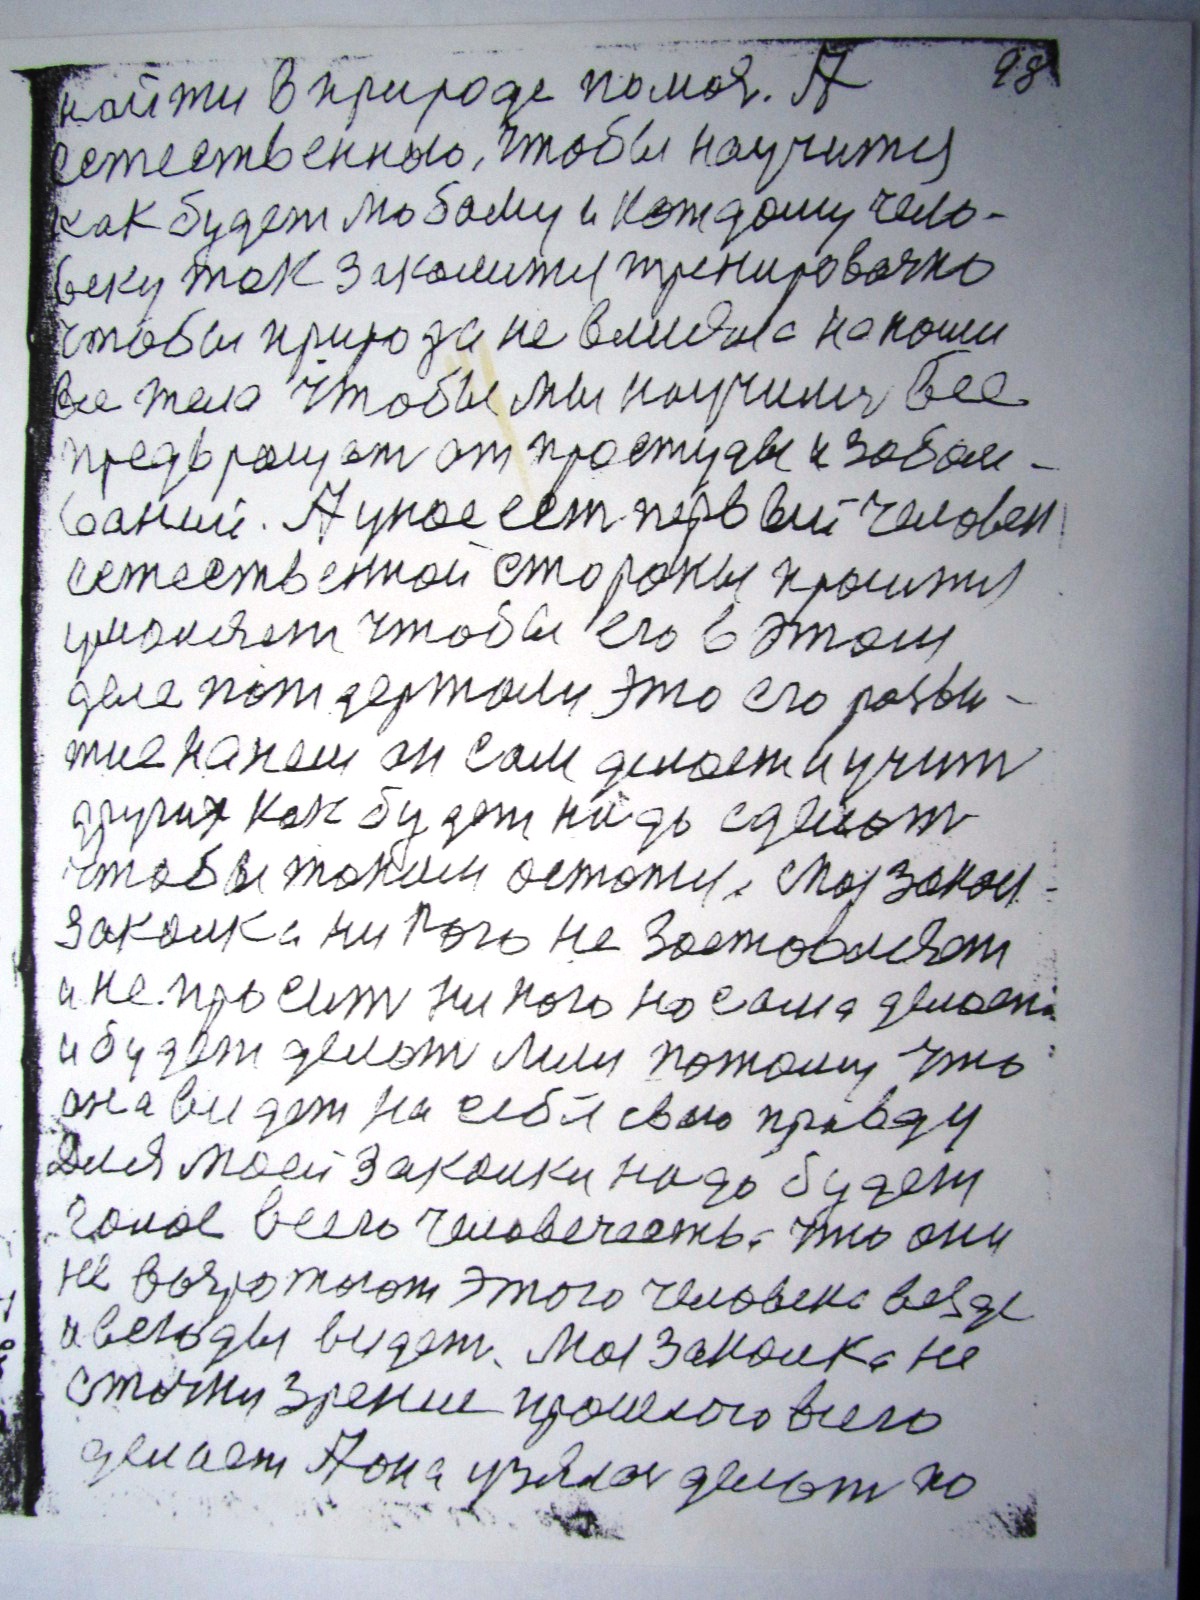 98
найти в природе помоя. А
естественною, чтобы научится
как будет любому и каждому чело-
веку так закалится тренировачно
чтобы природа не влияла на наши
все тела чтобы мы научимя все
предвращат от простуды и забале-
ваний. А у нас ест первый человек
естественной стороны просится
умоляет чтобы его в этом
деле потдержали это его разви-
тие на нем он сам делает и учит
других как будет надо сделат
чтобы таким остатся. Моя закал-
закалка ни кого не заставляет
и не просит ни кого но сама делает
и будет делат потому что
она видет на себя свою правду
Для моей закалки надо будет
голос всего человечества что они
не этого человека везде
и всегды видет. Моя закалка не
с точки зрение прошлого всего
делает А она узялася делат по